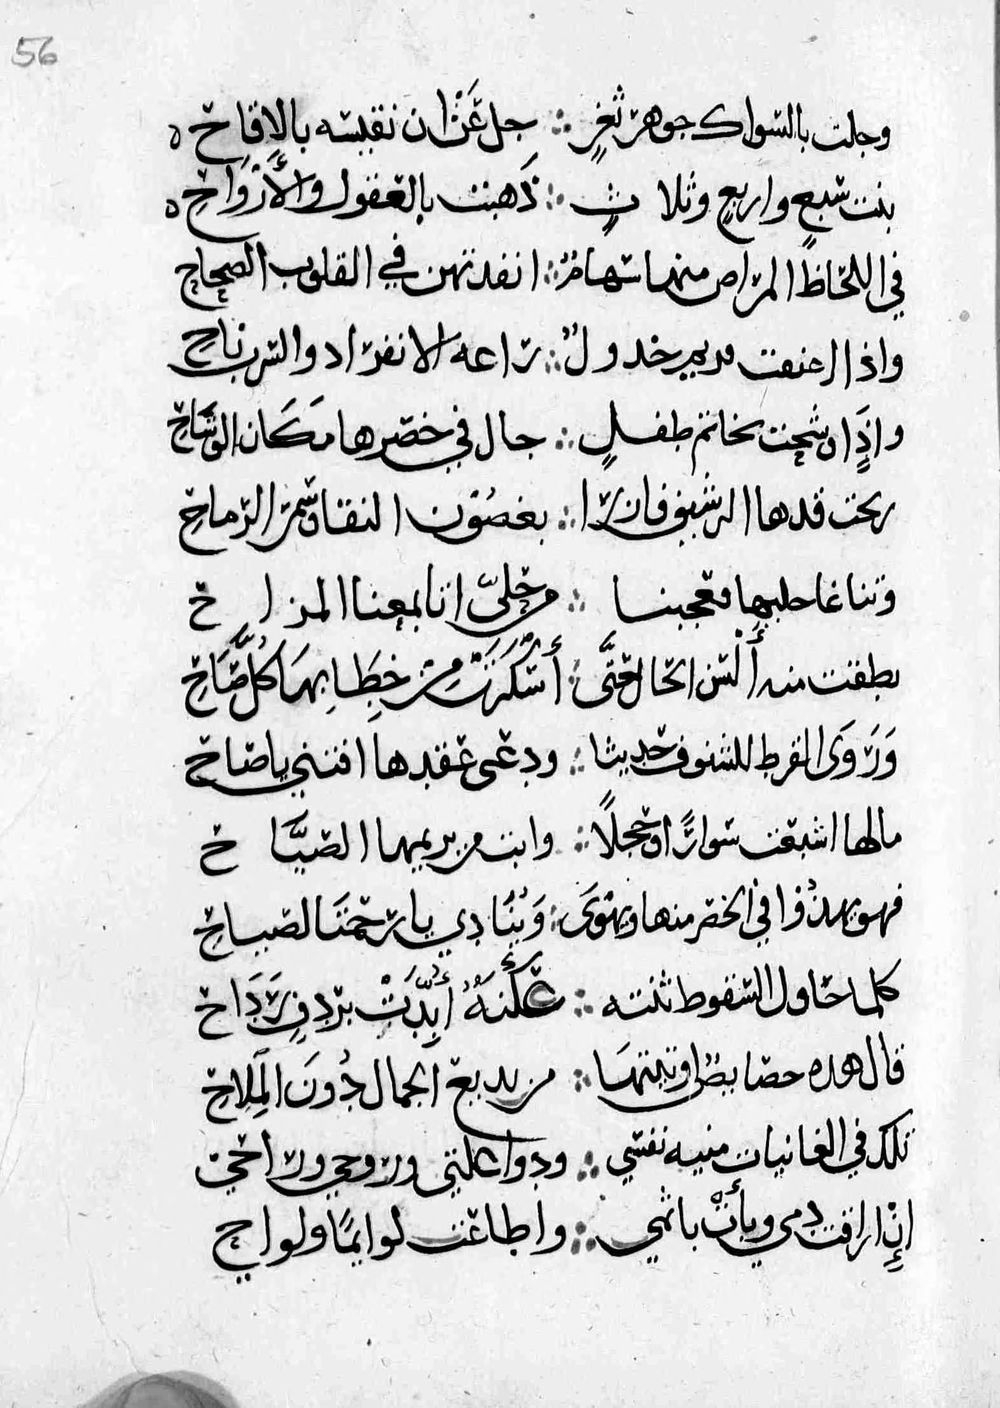 56
وجلت بالسواك جوهر ثغرٍ ؞ جل عَنْ ان نقيسه بالاقاح ه
بنت سبعٍ واربعٍ وثلاثٍ ؞ ذَهبت بالعقول والأَرْوَاحِ ه
في اللحاظ المراض منها سهام ؞ انفذتهن في القلوب الصحاح
واذا العنقت مريم خدولٌ ؞ راعه الانفراد والسرناح
واذَا وشحت بخاتم طفلٍ ؞ جال في خصرها مَكَان الوشاح
رنحت قدها الرشيق فازرا ؞ بغصُوْن النقا وسُمْر الرماح
وتناغا حليها معجبنا ؞ مرحليّ انا بمعنا المزاح
نطقت منه أَلْسُن الحال حتَّى ؞ أَسْكَرَتْ مِنْ خِطَابِهَا كُلَّ صَاحِ
وَرَوَى القرط للشنوف حديثا ؞ ودعى عقدها افتني ياصاح
مالها اشبعت سوارًا وحجلًا ؞ وابت من بريمها الصيَّاح
فهو يهذُوا في الخصر منها ويهْوَى ؞ وَيُنَادِي يا رحمتَا لصباحِ
كلما حاول السقوط ثنته ؞ عُكَنَهُ أُيِّدَتْ بردفٍ رَدَاح
قال هذه خصايصٌ اوتيتهَا ؞ من بديع الجمال دُونَ المِلَاحِ
تلك في الغانيات منيه نفسي ؞ ودوا علتي وروحي وراحي
إِنْ اراقت دمي وبأتْ باثمي ؞ واطاعت لوايمًا ولواحِ